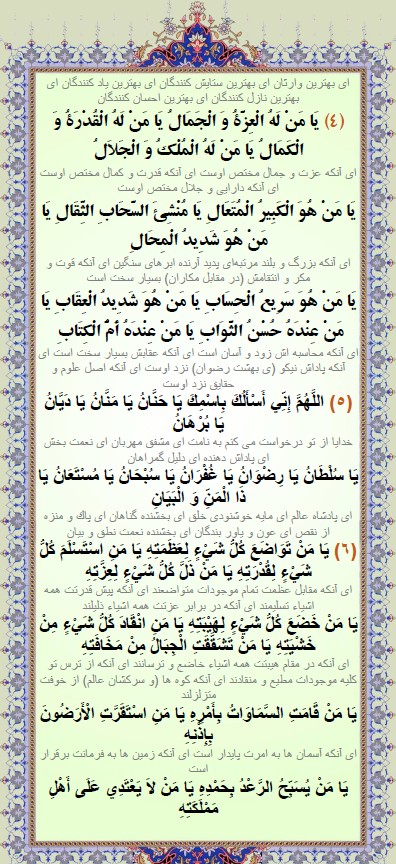 ای بهترین وارثان ای بهترین ستایش کنندگان ای بهترین یاد کنندگان ای
بهترین نازل کنندگان ای بهترین احسان کنندگان
(٤) يَا مَنْ لَهُ الْعِزَّةُ وَ الْجَمَالُ يَا مَنْ لَهُ الْقُدْرَةُ وَ
الْكَمَالُ يَا مَنْ لَهُ الْمُلْكُ وَ الْجَلاَلُ
ای آنکه عزت و جمال مختص اوست ای آنکه قدرت و کمال مختص اوست
ای آنکه دارایی و جلال مختص اوست
يَا مَنْ هُوَ الْكَبِيرُ الْمُتَعَالِ يَا مُنْشِئَ السَّحَابِ الثِّقَالِ يَا
مَنْ هُوَ شَدِيدُ الْمِحَالِ
ای آنکه بزرگ و بلند مرتبه‌ای پدید آرنده ابرهای سنگین ای آنکه قوت و
مکر و انتقامش (در مقابل مکاران) بسیار سخت است
يَا مَنْ هُوَ سَرِيعُ الْحِسَابِ يَا مَنْ هُوَ شَدِيدُ الْعِقَابِ يَا
مَنْ عِنْدَهُ حُسْنُ الثَّوَابِ يَا مَنْ عِنْدَهُ أُمُّ الْكِتَابِ
ای آنکه محاسبه اش زود و آسان است ای آنکه عقابش بسیار سخت است ای
آنکه پاداش نیکو (ی بهشت رضوان) نزد اوست ای آنکه اصل علوم و
حقایق نزد اوست
(٥) اللَّهُمَّ إِنِّي أَسْأَلُكَ بِاسْمِكَ يَا حَنَّانُ يَا مَنَّانُ يَا دَيَّانُ
يَا بُرْهَانُ
خدایا از تو درخواست می کنم به نامت ای مشفق مهربان ای نعمت بخش
ای پاداش دهنده ای دلیل گمراهان
يَا سُلْطَانُ يَا رِضْوَانُ يَا غُفْرَانُ يَا سُبْحَانُ يَا مُسْتَعَانُ يَا
ذَا الْمَنِّ وَ الْبَيَانِ
ای پادشاه عالم ای مایه خوشنودی خلق ای بخشنده گناهان ای پاک و منزه
از نقص ای عون و یاور بندگان ای بخشنده نعمت نطق و بیان
(٦) يَا مَنْ تَوَاضَعَ كُلُّ شَيْءٍ لِعَظَمَتِهِ يَا مَنِ اسْتَسْلَمَ كُلُّ
شَيْءٍ لِقُدْرَتِهِ يَا مَنْ ذَلَّ كُلُّ شَيْءٍ لِعِزَّتِهِ
ای آنکه مقابل عظمتت تمام موجودات متواضعند ای آنکه پیش قدرتت همه
اشیاء تسلیمند ای آنکه در برابر عزتت همه اشیاء ذلیلند
يَا مَنْ خَضَعَ كُلُّ شَيْءٍ لِهَيْبَتِهِ يَا مَنِ انْقَادَ كُلُّ شَيْءٍ مِنْ
خَشْيَتِهِ يَا مَنْ تَشَقَّقَتِ الْجِبَالُ مِنْ مَخَافَتِهِ
ای آنکه در مقام هیبتت همه اشیاء خاضع و ترسانند ای آنکه از ترس تو
کلیه موجودات مطیع و منقادند ای آنکه کوه ها (و سرکشان عالم) از خوفت
متزلزلند
يَا مَنْ قَامَتِ السَّمَاوَاتُ بِأَمْرِهِ يَا مَنِ اسْتَقَرَّتِ الْأَرَضُونَ
بِإِذْنِهِ
ای آنکه آسمان ها به امرت پایدار است ای آنکه زمین ها به فرمانت برقرار
است
يَا مَنْ يُسَبِّحُ الرَّعْدُ بِحَمْدِهِ يَا مَنْ لاَ يَعْتَدِي عَلَى أَهْلِ
مَمْلَكَتِهِ